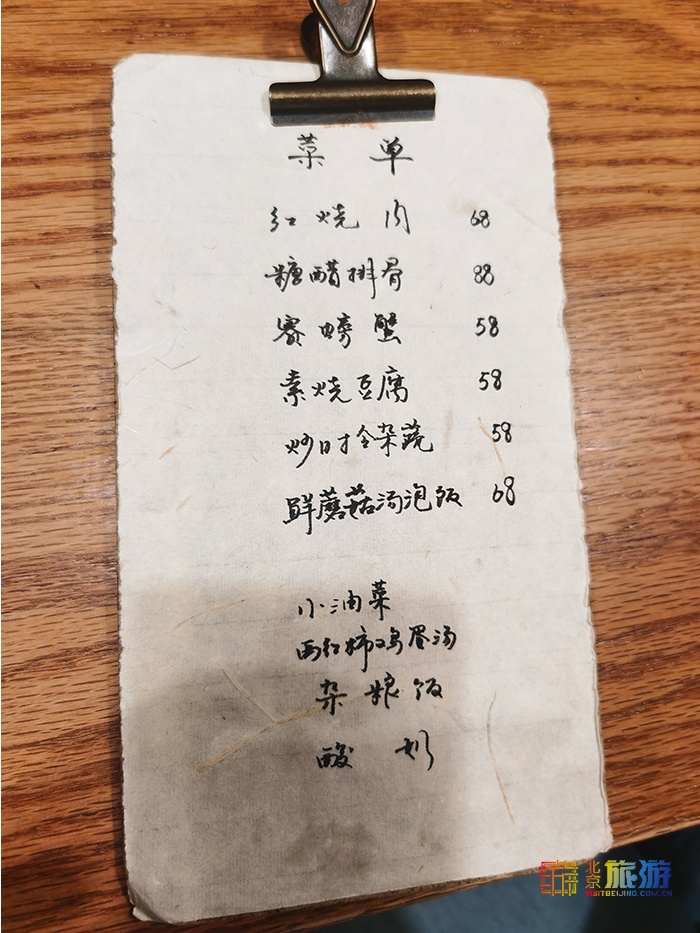 菜单
红烧肉 68
糖醋排骨 88
赛螃蟹 58
素烧豆腐 58
炒时令杂蔬 58
鲜蘑菇汤泡饭 68
小油菜
西红柿鸡蛋汤
杂粮饭
酸奶
北京旅游
VISITBEIJING.COM.CN